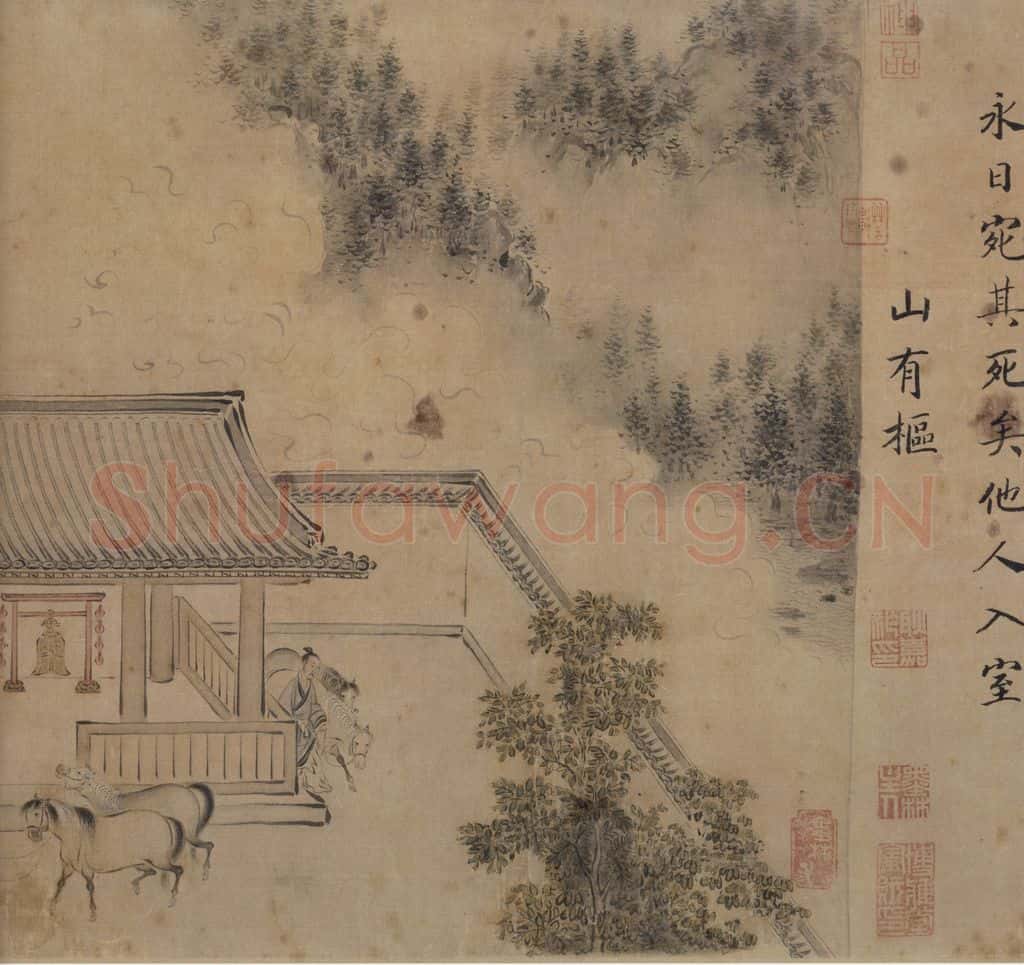 永日宛其死矣他人入室
山有樞
Shufawang.CN